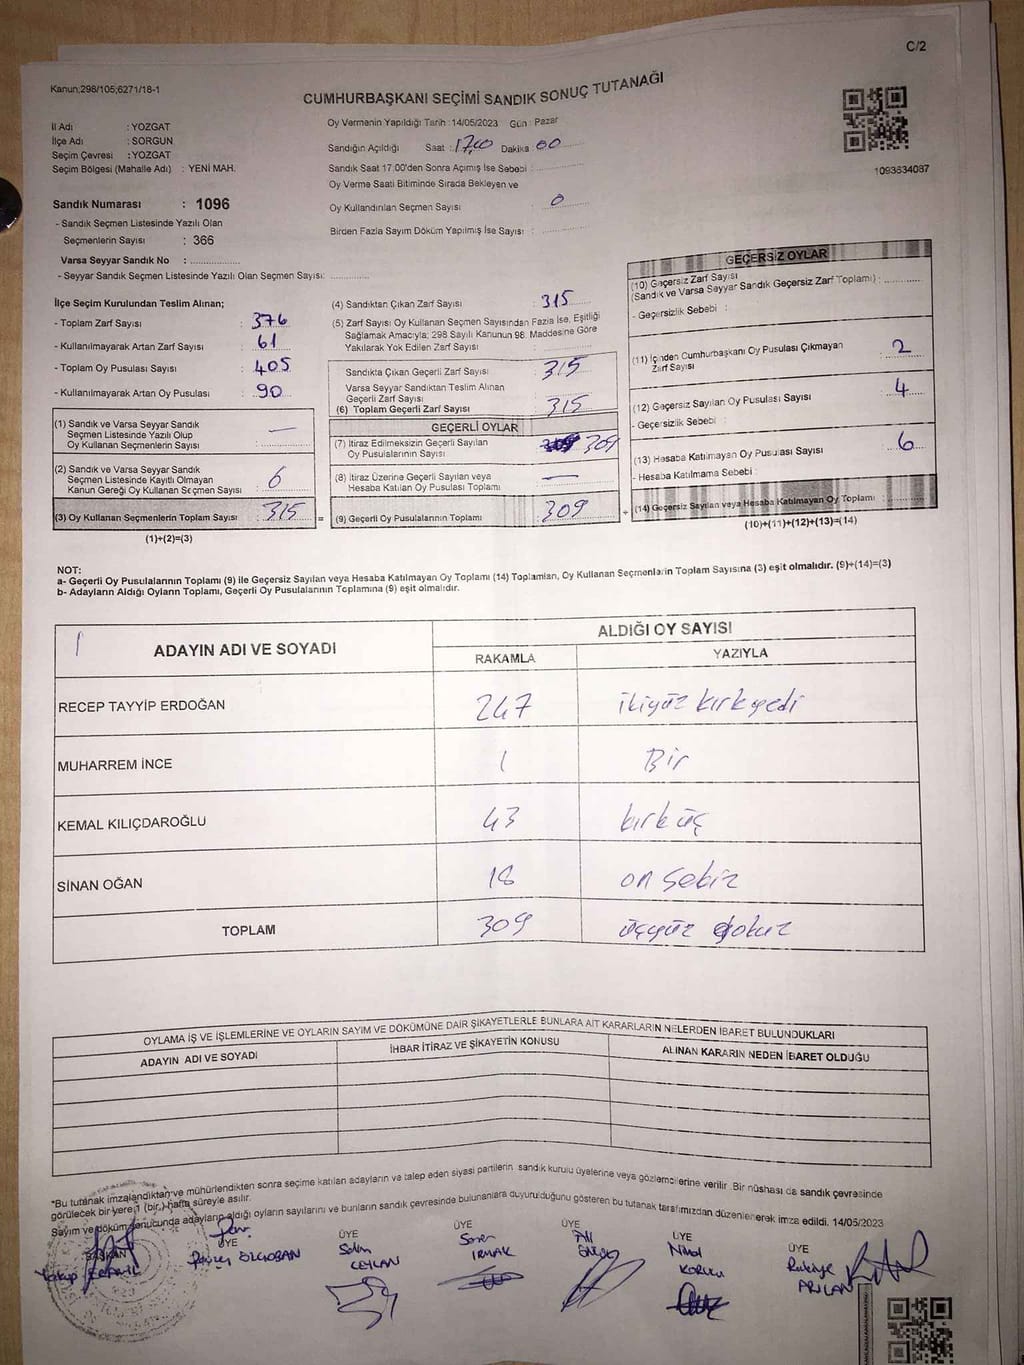 C/2
Kanun:298/105;6271/18-1
CUMHURBAŞKANI SEÇİMİ SANDIK SONUÇ TUTANAĞI
İl Adı : YOZGAT
İlçe Adı : SORGUN
Seçim Çevresi : YOZGAT
Seçim Bölgesi (Mahalle Adı) : YENİ MAH.
Sandık Numarası : 1096
- Sandık Seçmen Listesinde Yazılı Olan
Seçmenlerin Sayısı : 366
Varsa Seyyar Sandık No :
- Seyyar Sandık Seçmen Listesinde Yazılı Olan Seçmen Sayısı:
Oy Vermenin Yapıldığı Tarih : 14/05/2023 Gün : Pazar
Sandığın Açıldığı Saat : 17.00 Dakika : 00
Sandık Saat 17.00'den Sonra Açılmış İse Sebebi :
Oy Verme Saati Bitiminde Sırada Bekleyen ve
Oy Kullandırılan Seçmen Sayısı : 0
Birden Fazla Sayım Döküm Yapılmış İse Sayısı :
1093634087
İlçe Seçim Kurulundan Teslim Alınan;
- Toplam Zarf Sayısı : 376
- Kullanılmayarak Artan Zarf Sayısı : 61
- Toplam Oy Pusulası Sayısı : 405
- Kullanılmayarak Artan Oy Pusulası : 90
(1) Sandık ve Varsa Seyyar Sandık
Seçmen Listesinde Yazılı Olup
Oy Kullanan Seçmenlerin Sayısı : —
(2) Sandık ve Varsa Seyyar Sandık
Seçmen Listesinde Kayıtlı Olmayan
Kanun Gereği Oy Kullanan Seçmen Sayısı : 6
(3) Oy Kullanan Seçmenlerin Toplam Sayısı : 315
(1)+(2)=(3)
(4) Sandıktan Çıkan Zarf Sayısı : 315
(5) Zarf Sayısı Oy Kullanan Seçmen Sayısından Fazla İse, Eşitliği
Sağlamak Amacıyla; 298 Sayılı Kanunun 98. Maddesine Göre
Yakılarak Yok Edilen Zarf Sayısı :
Sandıkta Çıkan Geçerli Zarf Sayısı : 315
Varsa Seyyar Sandıktan Teslim Alınan
Geçerli Zarf Sayısı :
(6) Toplam Geçerli Zarf Sayısı : 315
GEÇERLİ OYLAR
(7) İtiraz Edilmeksizin Geçerli Sayılan
Oy Pusulalarının Sayısı : 309
(8) İtiraz Üzerine Geçerli Sayılan veya
Hesaba Katılan Oy Pusulası Toplamı : —
= (9) Geçerli Oy Pusulalarının Toplamı : 309
GEÇERSİZ OYLAR
(10) Geçersiz Zarf Sayısı
(Sandık ve Varsa Seyyar Sandık Geçersiz Zarf Toplamı) :
- Geçersizlik Sebebi :
(11) İçinden Cumhurbaşkanı Oy Pusulası Çıkmayan
Zarf Sayısı : 2
(12) Geçersiz Sayılan Oy Pusulası Sayısı : 4
- Geçersizlik Sebebi :
(13) Hesaba Katılmayan Oy Pusulası Sayısı : 6
- Hesaba Katılmama Sebebi :
+ (14) Geçersiz Sayılan veya Hesaba Katılmayan Oy Toplamı :
(10)+(11)+(12)+(13)=(14)
NOT:
a- Geçerli Oy Pusulalarının Toplamı (9) ile Geçersiz Sayılan veya Hesaba Katılmayan Oy Toplamı (14) Toplamları, Oy Kullanan Seçmenlerin Toplam Sayısına (3) eşit olmalıdır. (9)+(14)=(3)
b- Adayların Aldığı Oyların Toplamı, Geçerli Oy Pusulalarının Toplamına (9) eşit olmalıdır.
ADAYIN ADI VE SOYADI ALDIĞI OY SAYISI
RAKAMLA YAZIYLA
RECEP TAYYİP ERDOĞAN 247 ikiyüz kırk yedi
MUHARREM İNCE 1 Bir
KEMAL KILIÇDAROĞLU 43 kırk üç
SİNAN OĞAN 18 on sekiz
TOPLAM 309 üçyüz dokuz
OYLAMA İŞ VE İŞLEMLERİNE VE OYLARIN SAYIM VE DÖKÜMÜNE DAİR ŞİKAYETLERLE BUNLARA AİT KARARLARIN NELERDEN İBARET BULUNDUKLARI
ADAYIN ADI VE SOYADI İHBAR İTİRAZ VE ŞİKAYETİN KONUSU ALINAN KARARIN NEDEN İBARET OLDUĞU
*Bu tutanak imzalandıktan ve mühürlendikten sonra seçime katılan adayların ve talep eden siyasi partilerin sandık kurulu üyelerine veya gözlemcilerine verilir. Bir nüshası da sandık çevresinde
görülecek bir yere 1 (bir) hafta süreyle asılır.
Sayım ve döküm sonucunda adayların aldığı oyların sayılarını ve bunların sandık çevresinde bulunanlara duyurulduğunu gösteren bu tutanak tarafımızdan düzenlenerek imza edildi. 14/05/2023
BAŞKAN ÜYE ÜYE ÜYE ÜYE ÜYE ÜYE
Selim
CEYLAN
IRMAK
Ali
Rukiye
ARILAN